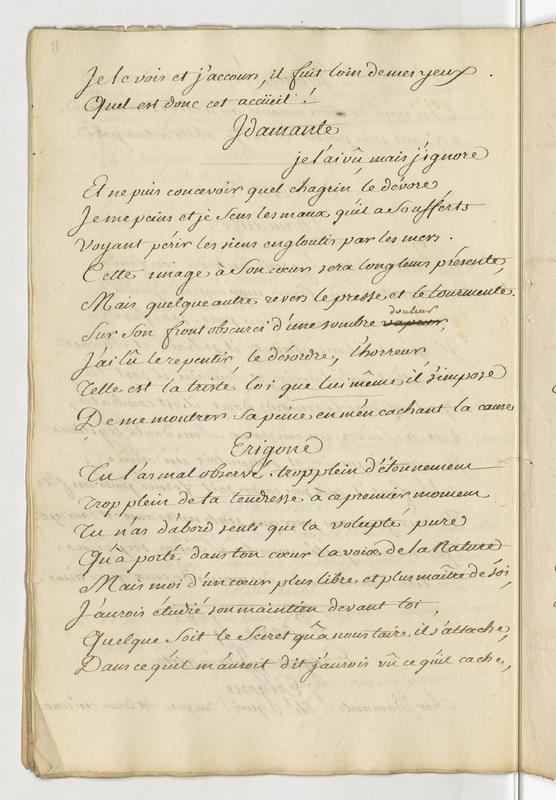 Je le vois et j'accours, il fuit loin de mes yeux.
Quel est donc cet accüeil!
Idamante
je l'ai vû, mais j'ignore
Et ne puis concevoir quel chagrin le dévore
Je me peins et je sens les maux qu'il a soufferts
Voyant périr les siens engloutis par les mers.
Cette image à son cœur sera longtems présente,
Mais quelque autre revers le presse et le tourmente.
douleur
Sur son front obscurci d'une sombre vapeur,
J'ai lû le repentir, le désordre, l'horreur,
Telle est la triste loi que lui même il s'impose
De me montrer sa peine en m'en cachant la cause
Erigone
Tu l'as mal observé, trop plein d'étonnement
Trop plein de ta tendresse à ce premier momen
Tu n'as d'abord senti que la volupté pure
Qu'à porté dans ton cœur la voix de la Nature
Mais moi d'un cœur plus libre et plus maître de soi,
J'aurois étudié son maintien devant toi,
Quelque soit le secret qu'à nous taire il s'attache,
Dans ce qu'il m'auroit dit j'aurois vû ce qu'il cache,